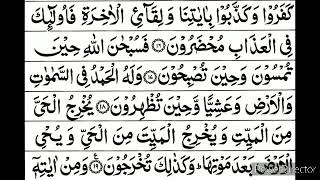 كَفَرُوْا وَكَذَّبُوْا بِاٰيٰتِنَا وَلِقَآئِ الْاٰخِرَةِ فَاُولٰٓئِكَ
فِى الْعَذَابِ مُحْضَرُوْنَ ۝۱۶ فَسُبْحٰنَ اللّٰهِ حِيْنَ
تُمْسُوْنَ وَحِيْنَ تُصْبِحُوْنَ ۝۱۷ وَلَهُ الْحَمْدُ فِى السَّمٰوٰتِ
وَالْاَرْضِ وَعَشِيًّا وَّحِيْنَ تُظْهِرُوْنَ ۝۱۸ يُخْرِجُ الْحَىَّ
مِنَ الْمَيِّتِ وَيُخْرِجُ الْمَيِّتَ مِنَ الْحَىِّ وَ يُحْىِ
الْاَرْضَ بَعْدَ مَوْتِهَا ؕ وَكَذٰلِكَ تُخْرَجُوْنَ ۝۱۹ وَمِنْ اٰيٰتِهٖۤ